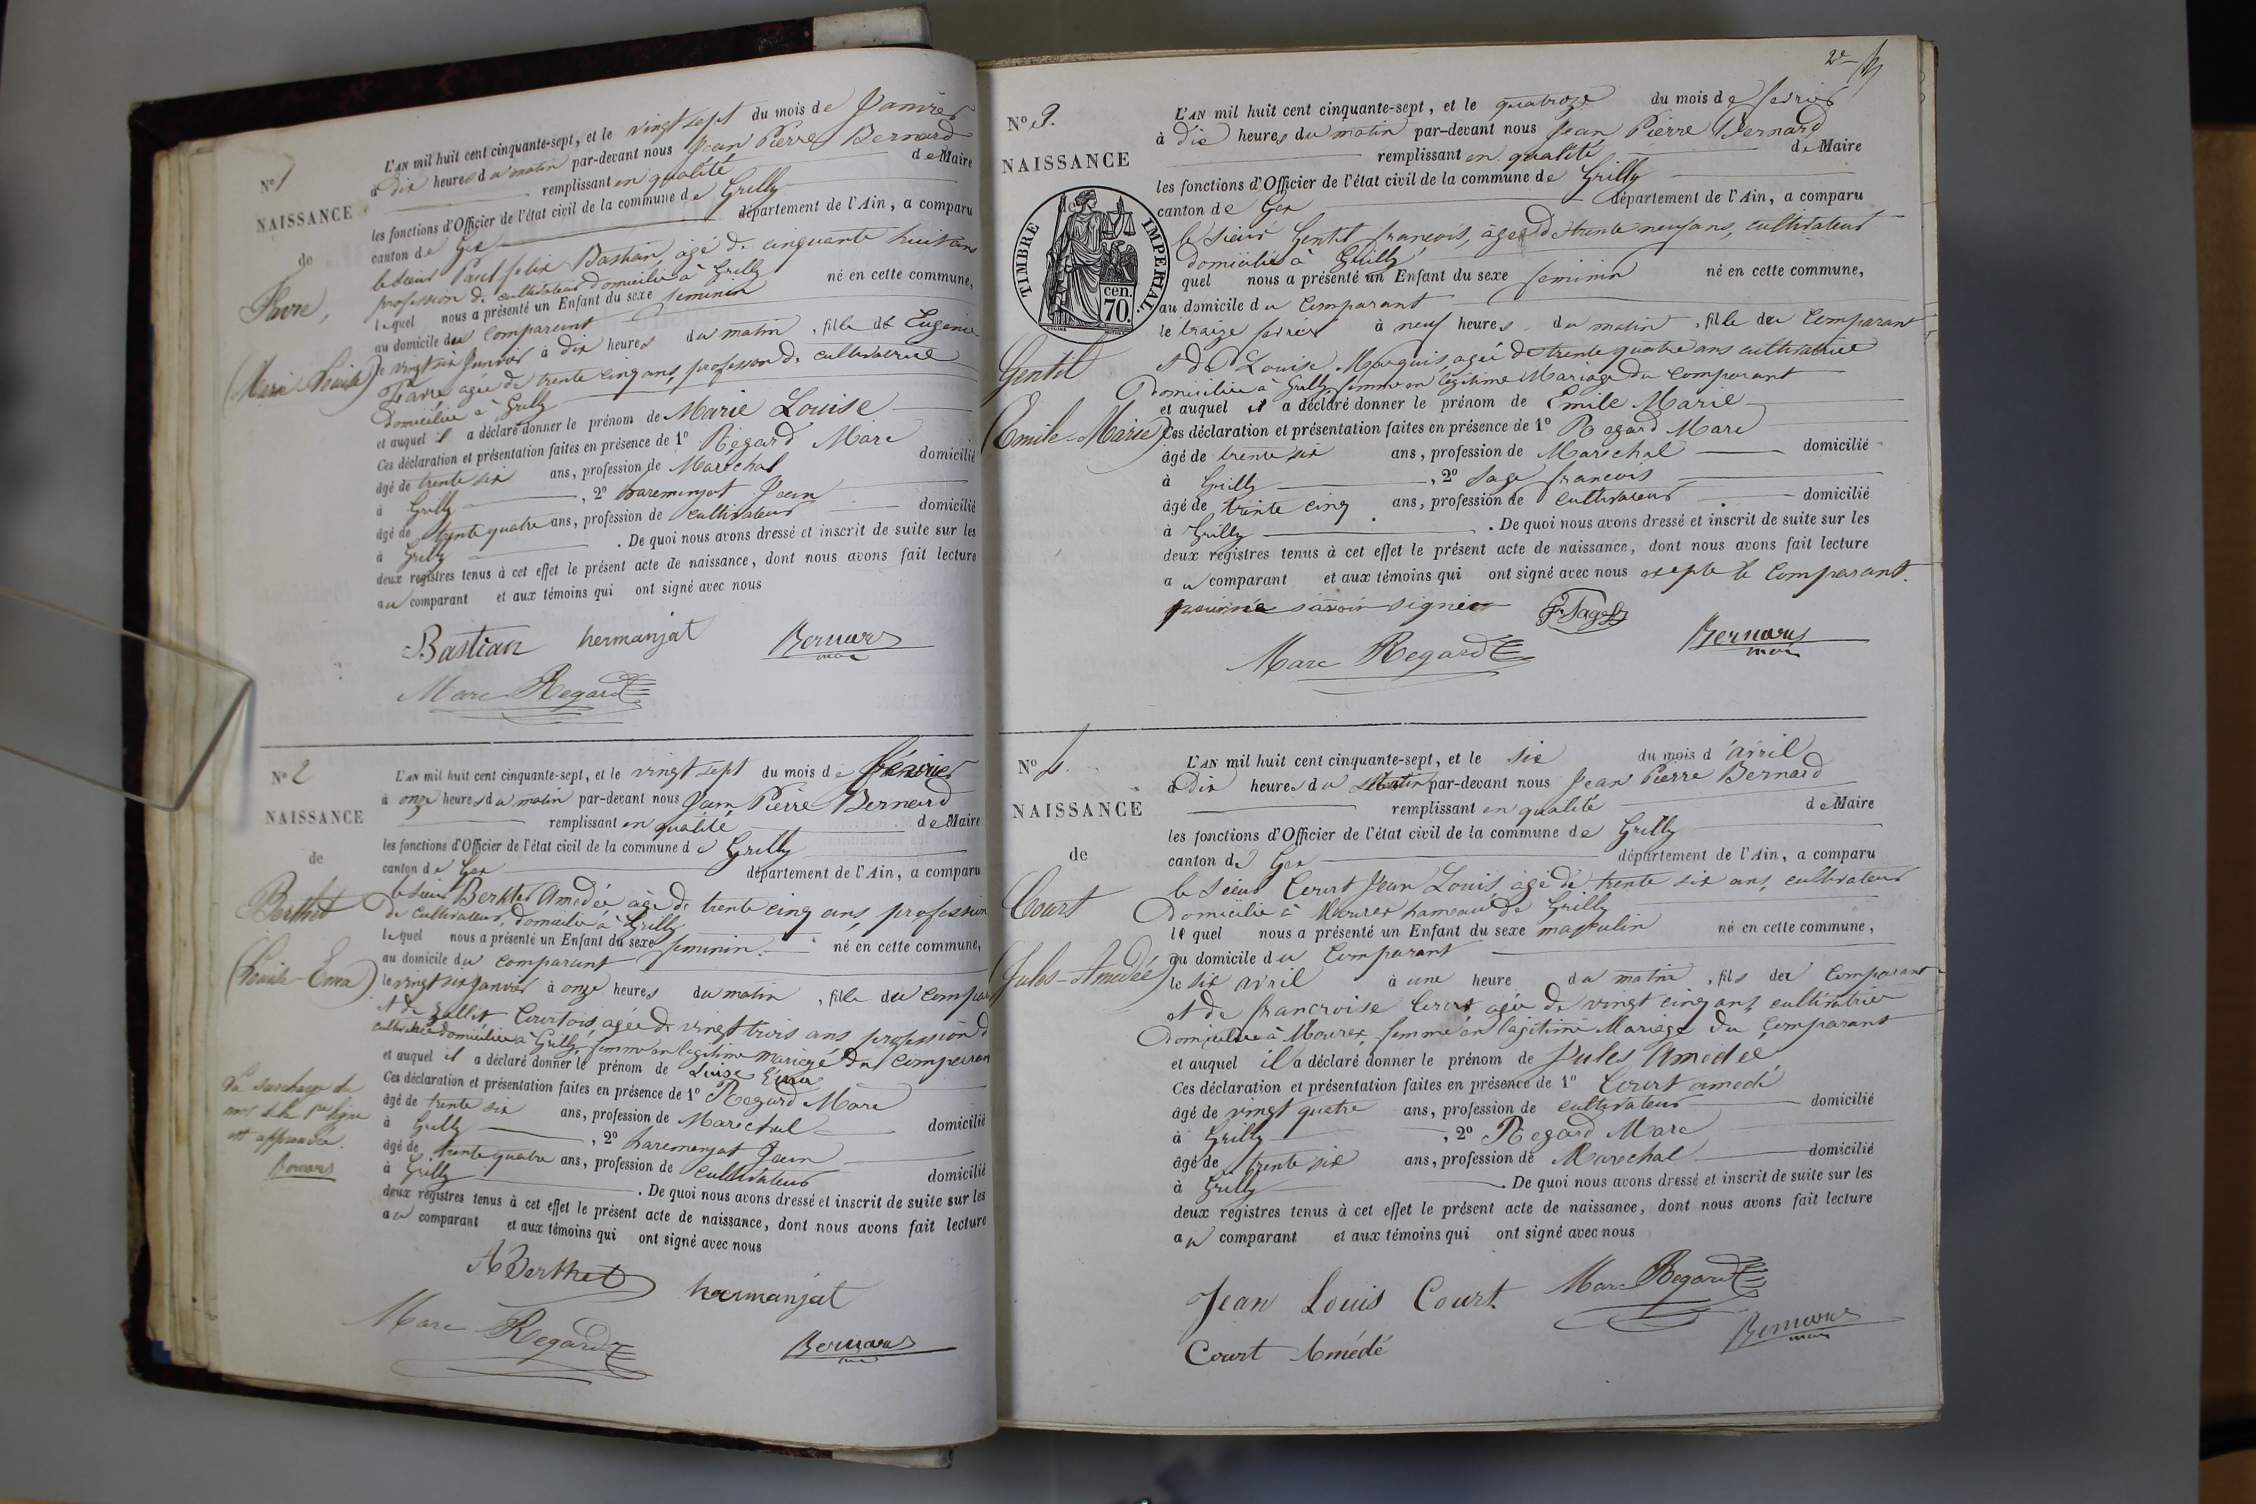 N° 1
NAISSANCE
de
Favre,
(Marie Louise)
L'AN mil huit cent cinquante-sept, et le vingt sept du mois de Janvier
à dix heures du matin par-devant nous Jean Pierre Bernard
remplissant en qualité de Maire
les fonctions d'Officier de l'état civil de la commune de Grilly
canton de Gex département de l'Ain, a comparu
le sieur Paul felix Bastian, agé de cinquante huit ans
profession de cultivateur domicilié à Grilly
lequel nous a présenté un Enfant du sexe feminin né en cette commune,
au domicile du comparant
le vingt six Janvier à dix heures du matin, fille de Eugenie
Favre agée de trente cinq ans, profession de cultivatrice
domiciliée à Grilly
et auquel il a déclaré donner le prénom de Marie Louise
Ces déclaration et présentation faites en présence de 1° Regard Marc
âgé de trente six ans, profession de Maréchal domicilié
à Grilly, 2° haremenjat Jean
âgé de trente quatre ans, profession de cultivateur domicilié
à Grilly. De quoi nous avons dressé et inscrit de suite sur les
deux registres tenus à cet effet le présent acte de naissance, dont nous avons fait lecture
au comparant et aux témoins qui ont signé avec nous
Bastian hermanjat Bernard
maire
Marc Regard
N° 2
NAISSANCE
de
Berthet
(Louise-Ema)
L'AN mil huit cent cinquante-sept, et le vingt sept du mois de Janvier
à onze heures du matin par-devant nous Jean Pierre Bernard
remplissant en qualité de Maire
les fonctions d'Officier de l'état civil de la commune de Grilly
canton de Gex département de l'Ain, a comparu
le sieur Berthet Amédée agé de trente cinq ans, profession
de cultivateur, domicilié à Grilly
lequel nous a présenté un Enfant du sexe feminin né en cette commune,
au domicile du comparant
le vingt six Janvier à onze heures du matin, fille du comparant
et de Courtois, agée de vingt trois ans profession de
cultivatrice domiciliée à Grilly, femme en legitime mariage du comparant
et auquel il a déclaré donner le prénom de Luise Ema
Ces déclaration et présentation faites en présence de 1° Regard Marc
âgé de trente six ans, profession de Maréchal domicilié
à Grilly, 2° haremenjat Jean
âgé de trente quatre ans, profession de cultivateur domicilié
à Grilly. De quoi nous avons dressé et inscrit de suite sur les
deux registres tenus à cet effet le présent acte de naissance, dont nous avons fait lecture
au comparant et aux témoins qui ont signé avec nous
La surcharge du
mot à la 1re ligne
est approuvée.
Bernard
A Berthet hermanjat
Marc Regard Bernard
2e
N° 3.
NAISSANCE
de
TIMBRE IMPERIAL.
70 cen.
Gentil
(Emile-Marie)
L'AN mil huit cent cinquante-sept, et le quatroze du mois de fevrier
à dix heures du matin par-devant nous Jean Pierre Bernard
remplissant en qualité de Maire
les fonctions d'Officier de l'état civil de la commune de Grilly
canton de Gex département de l'Ain, a comparu
le sieur Gentil francois, âgé de trente neuf ans, cultivateur
domicilié à Grilly
quel nous a présenté un Enfant du sexe feminin né en cette commune,
au domicile du Comparant
le traize fevrier à neuf heures du matin, fille du Comparant
et de Louise Marquis, agée de trente quatre ans cultivatrice
domiciliée à Grilly femme en légitime Mariage du comparant
et auquel il a déclaré donner le prénom de Emile Marie
Ces déclaration et présentation faites en présence de 1° Regard Marc
âgé de trente six ans, profession de Marechal domicilié
à Grilly, 2° Sage francois
âgé de trente cinq ans, profession de cultivateur domicilié
à Grilly. De quoi nous avons dressé et inscrit de suite sur les
deux registres tenus à cet effet le présent acte de naissance, dont nous avons fait lecture
au comparant et aux témoins qui ont signé avec nous exepte le Comparant.
savoir signer Fr Sage
Bernard
maire
Marc Regard
N° 4.
NAISSANCE
de
Court
(Jules-Amedée)
L'AN mil huit cent cinquante-sept, et le six du mois d'avril
à Dix heures du Matin par-devant nous Jean Pierre Bernard
remplissant en qualité de Maire
les fonctions d'Officier de l'état civil de la commune de Grilly
canton de Gex département de l'Ain, a comparu
le sieur Court Jean Louis, agé de trente six ans, cultivateur
domicilié à Mourex hameau de Grilly
le quel nous a présenté un Enfant du sexe masculin né en cette commune,
au domicile du Comparant
le six avril à une heure du matin, fils du Comparant
et de francoise Court, agée de vingt cinq ans, cultivatrice
Domiciliée à Mourex, femme en lagitime Mariage du Comparant
et auquel il a déclaré donner le prénom de Jules Amedée
Ces déclaration et présentation faites en présence de 1° Court amedé
âgé de vingt quatre ans, profession de cultivateur domicilié
à Grilly, 2° Regard Marc
âgé de trente six ans, profession de Marechal domicilié
à Grilly. De quoi nous avons dressé et inscrit de suite sur les
deux registres tenus à cet effet le présent acte de naissance, dont nous avons fait lecture
au comparant et aux témoins qui ont signé avec nous
Jean Louis Court. Marc Regard
Court Amédé Bernard
maire